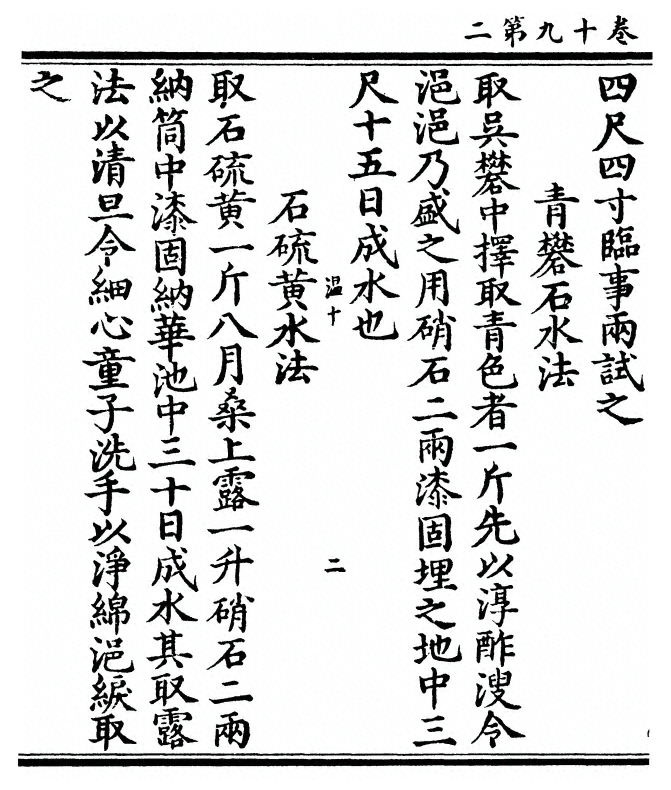 卷十九第二
四尺四寸臨事兩試之
青礬石水法
取吳礬中擇取青色者一斤先以淳酢溲令
浥浥乃盛之用硝石二兩漆固埋之地中三
尺十五日成水也
温十
二
石硫黄水法
取石硫黄一斤八月桑上露一升硝石二兩
納筒中漆固納華池中三十日成水其取露
法以清旦令細心童子洗手以淨綿浥綟取
之